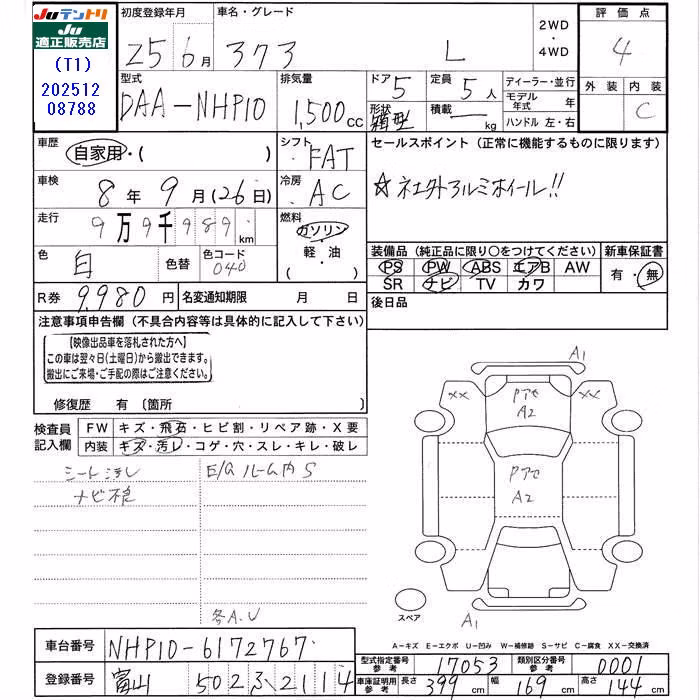 JUテントリ
JU
適正販売店
(T1)
202512
08788
初度登録年月
25 6月
車名・グレード
373 L
2WD
・
4WD
評価点
4
外装 内装
C
型式
DAA-NHP10
排気量
1,500cc
ドア 5
形状 箱型
定員 5人
積載 kg
ディーラー・並行
モデル年式 年
ハンドル 左・右
車歴
自家用・( )
シフト
FAT
セールスポイント (正常に機能するものに限ります)
☆社外アルミホイール!!
車検
8年 9月(26日)
冷房
AC
走行
9万9千989km
燃料
ガソリン
・軽・油
( )
色
白
色替
色コード
040
装備品 (純正品に限り○をつけてください)
PS PW ABS エアB AW
SR ナビ TV カワ
新車保証書
有・無
R券 9,980円
名変通知期限 月 日
後日品
注意事項申告欄 (不具合内容等は具体的に記入して下さい)
【映像出品車を落札された方へ】
この車は翌々日(土曜日)から搬出できます。
搬出にご来場・ご手配の際はご注意ください。
修復歴 有 〔箇所 〕
検査員
記入欄
FW キズ・飛石・ヒビ割・リペア跡・X要
内装 キズ・汚レ・コゲ・穴・スレ・キレ・破レ
シート汚レ
E/Gルーム内S
ナビ不良
各A.U
A1
XX XX
Pアセ
A2
Pアセ
A2
スペア
A1
A-キズ E-エクボ U-凹み W-補修跡 S-サビ C-腐食 XX-交換済
車台番号 NHP10-6172767
型式指定番号 参考 17053
類別区分番号 参考 0001
登録番号 富山 502 ふ 2114
車庫証明用 参考 長さ 399cm 幅 169cm 高さ 144cm